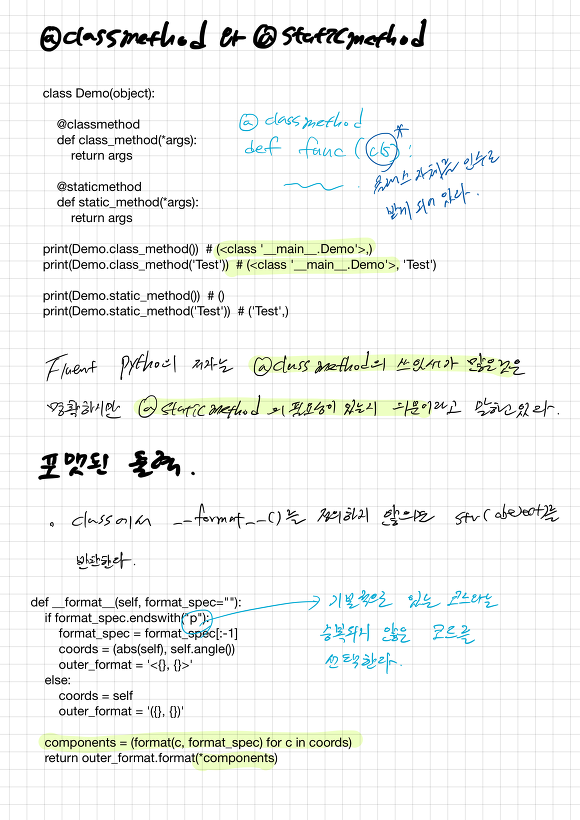 @classmethod 와 @staticmethod
class Demo(object):
@classmethod
def class_method(*args):
return args
@staticmethod
def static_method(*args):
return args
@classmethod
def func (cls*):
클래스 자체를 인수로
받게 되어 있다.
print(Demo.class_method())  # (<class '__main__.Demo'>,)
print(Demo.class_method('Test'))  # (<class '__main__.Demo'>, 'Test')
print(Demo.static_method())  # ()
print(Demo.static_method('Test'))  # ('Test',)
Fluent Python의 저자는 @classmethod의 쓰임새가 많은것은
명확하지만 @staticmethod의 필요성이 있는지 의문이라고 말하고있다.
포맷된 출력.
class에서 __format__()을 정의하지 않으면 str(object)를
반환한다.
def __format__(self, format_spec=""):
if format_spec.endswith("p"):
format_spec = format_spec[:-1]
coords = (abs(self), self.angle())
outer_format = '<{}, {}>'
else:
coords = self
outer_format = '({}, {})'
기본적으로 있는 코드와는
중복되지 않은 코드를
선택한다.
components = (format(c, format_spec) for c in coords)
return outer_format.format(*components)